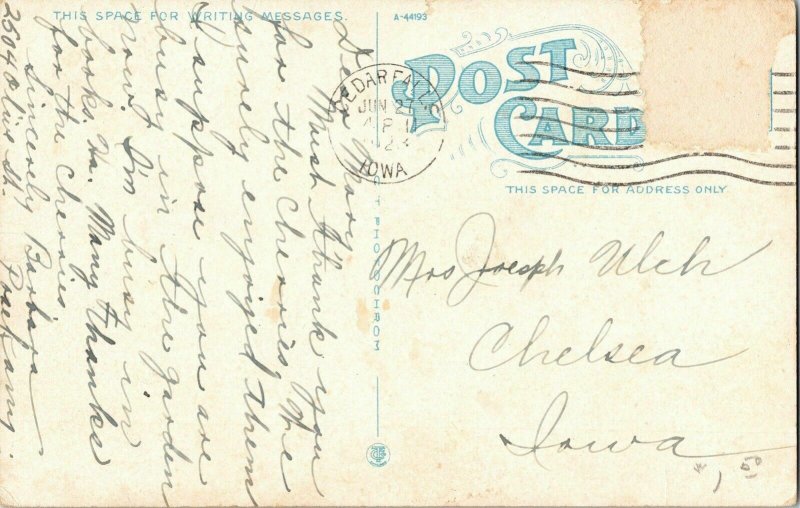 THIS SPACE FOR WRITING MESSAGES.
A-44193
POST
CARD
CEDAR FALLS
JUN 27
4 P
1923
IOWA
THIS SPACE FOR ADDRESS ONLY
Dear Mary:
Must thank you
for the cherries. We
surely enjoyed them
I suppose you are
busy in the garden
now. I'm busy in
books. Ha. Many thanks
for the cherries
Sincerely Barbara
2504 Olive St.
Mrs Joseph Ulch
Chelsea
Iowa